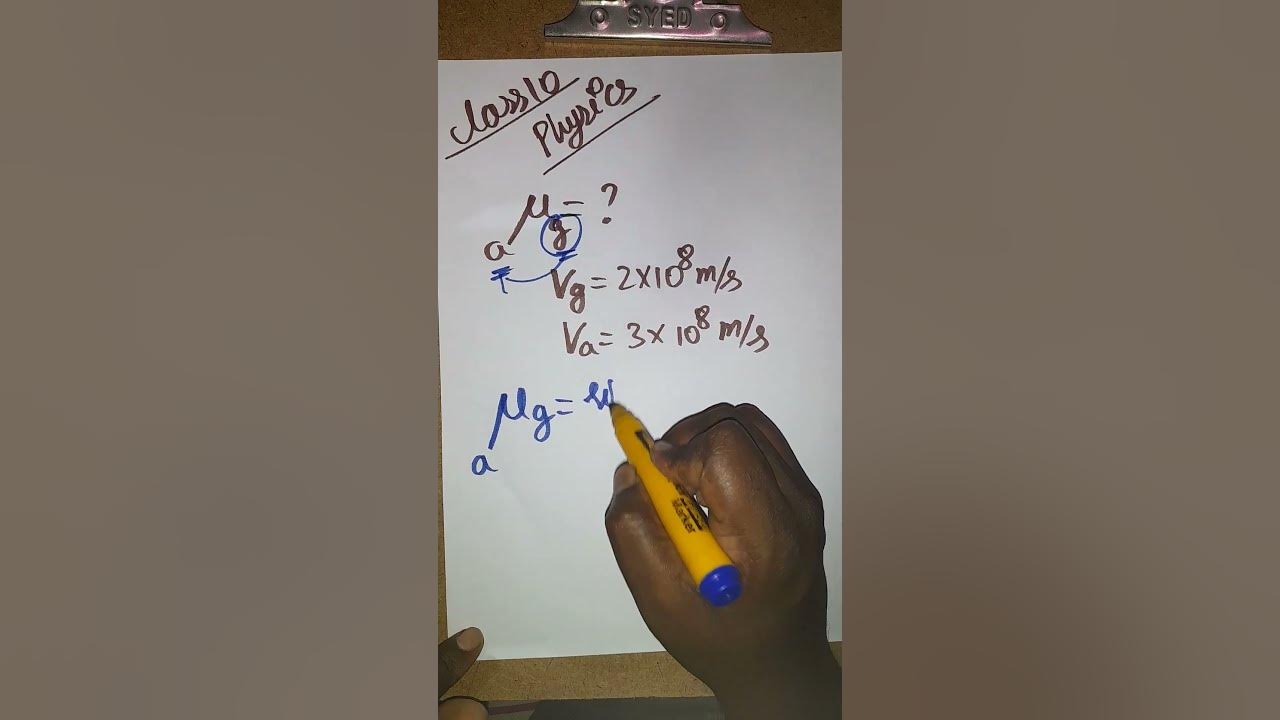 SYED
Class 10
Physics
aμg = ?
Vg = 2×10⁸ m/s
Va = 3×10⁸ m/s
aμg =
Marker